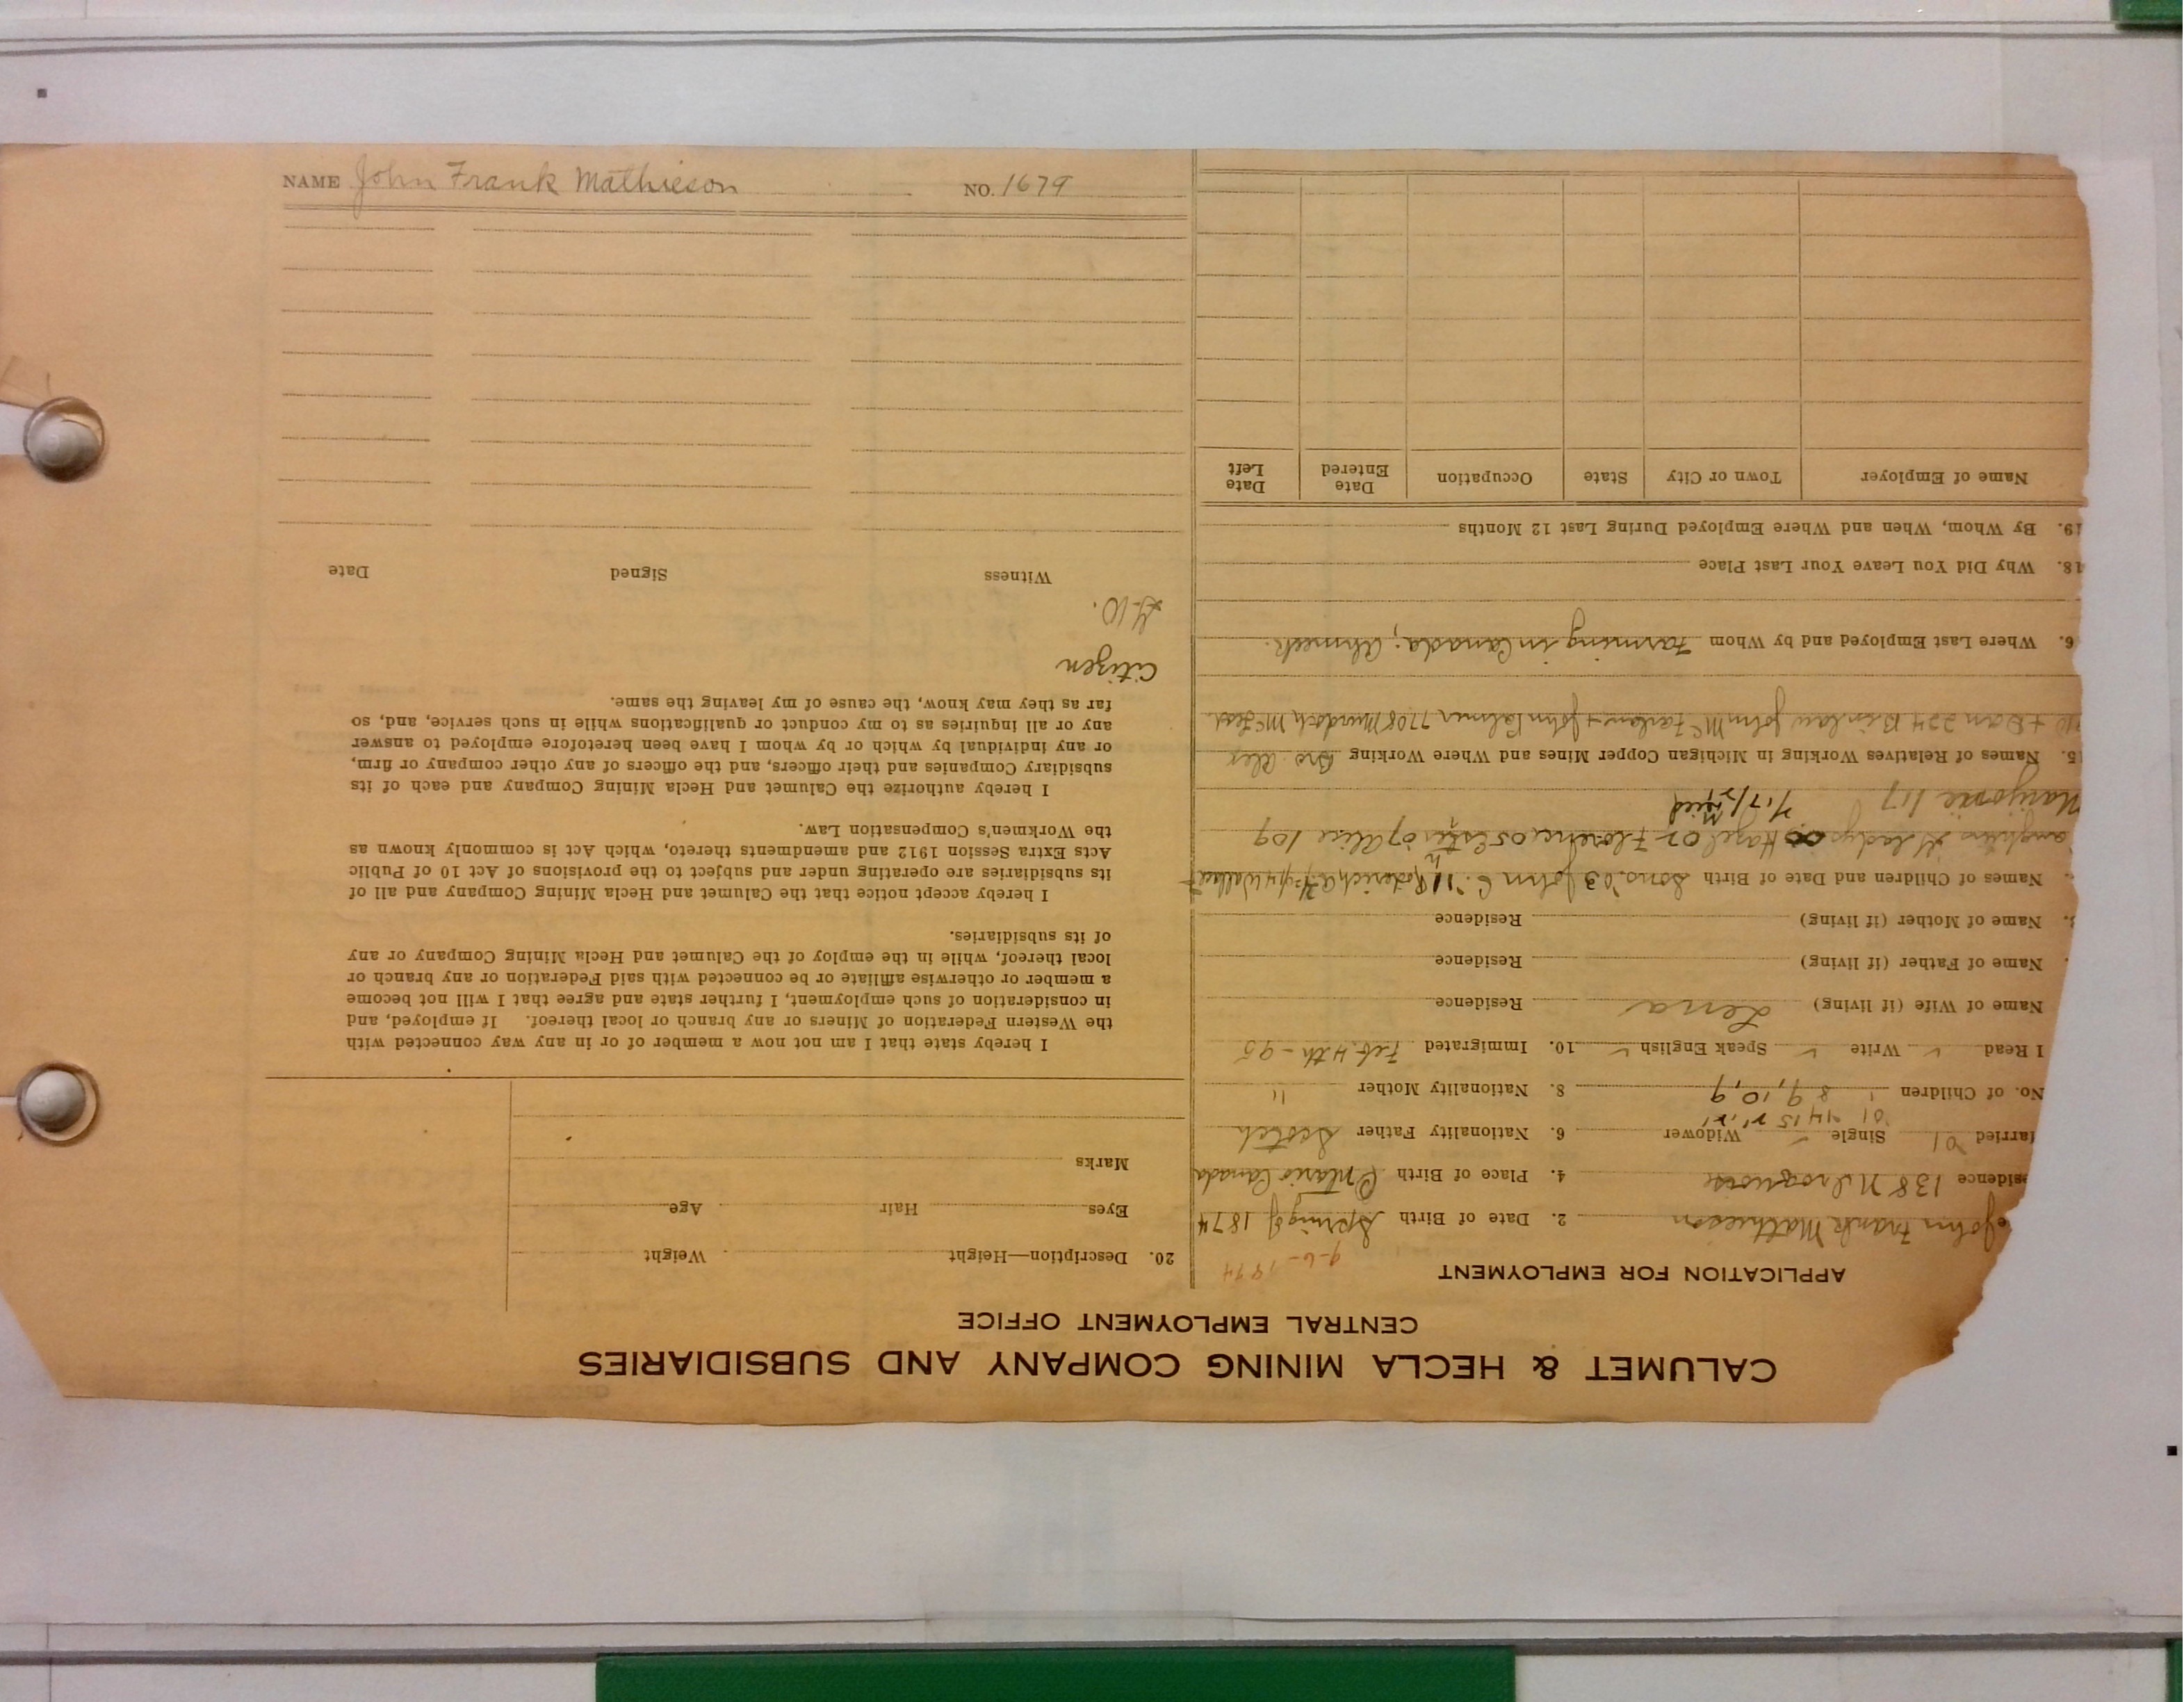 CALUMET & HECLA MINING COMPANY AND SUBSIDIARIES
CENTRAL EMPLOYMENT OFFICE
APPLICATION FOR EMPLOYMENT
9-6-1874
John Frank Mathieson 2. Date of Birth Spring of 1874
sidence 138 N Iroquois 4. Place of Birth Ontario Canada
arried 01 Single Widower 6. Nationality Father Scotch
No. of Children 8 9, 10, 9 8. Nationality Mother "
I Read ✓ Write ✓ Speak English ✓ 10. Immigrated Feb. 4th - 95
Name of Wife (if living) Lena Residence
Name of Father (if living) Residence
Name of Mother (if living) Residence
Names of Children and Date of Birth Sons '03 John C. '11 Roderick
Gladys 00 Hazel 02 Florence 05 Esther 07 Alice 109
Marjorie 117 died
5. Names of Relatives Working in Michigan Copper Mines and Where Working Bro. Alex
+ Dan 224 Binlaw John McFarlane + John Palmer 7708 Murdoch McLeod
6. Where Last Employed and by Whom Farming in Canada; Ahmeek.
18. Why Did You Leave Your Last Place
19. By Whom, When and Where Employed During Last 12 Months
Name of Employer Town or City State Occupation Date Entered Date Left
20. Description—Height Weight
Eyes Hair Age
Marks
I hereby state that I am not now a member of or in any way connected with
the Western Federation of Miners or any branch or local thereof. If employed, and
in consideration of such employment, I further state and agree that I will not become
a member or otherwise affiliate or be connected with said Federation or any branch or
local thereof, while in the employ of the Calumet and Hecla Mining Company or any
of its subsidiaries.
I hereby accept notice that the Calumet and Hecla Mining Company and all of
its subsidiaries are operating under and subject to the provisions of Act 10 of Public
Acts Extra Session 1912 and amendments thereto, which Act is commonly known as
the Workmen's Compensation Law.
I hereby authorize the Calumet and Hecla Mining Company and each of its
subsidiary Companies and their officers, and the officers of any other company or firm,
or any individual by which or by whom I have been heretofore employed to answer
any or all inquiries as to my conduct or qualifications while in such service, and, so
far as they may know, the cause of my leaving the same.
Citizen
Witness Signed Date
NAME John Frank Mathieson NO. 1679